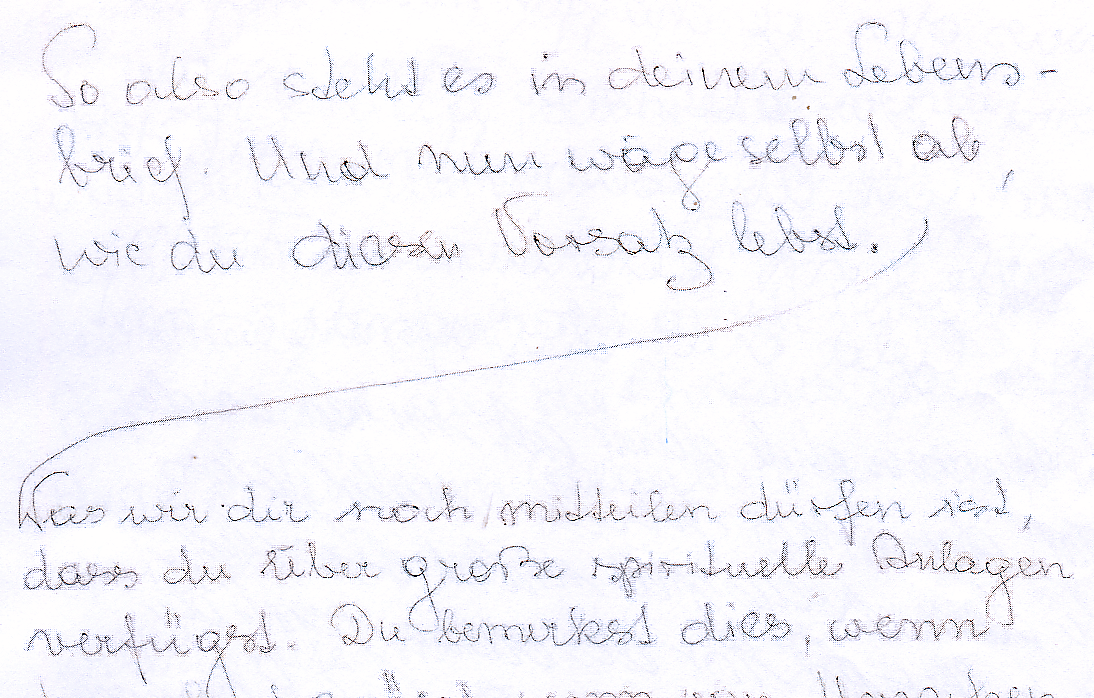 So also steht es in deinem Lebens-
brief. Und nun wäge selbst ab,
wie du diesen Vorsatz lebst.
Was wir dir noch mitteilen dürfen ist,
dass du über große spirituelle Anlagen
verfügst. Du bemerkst dies, wenn